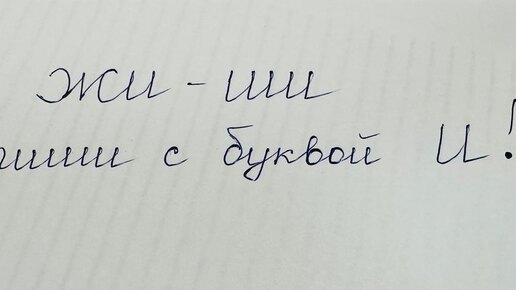 Жи - ши
пиши с буквой И!